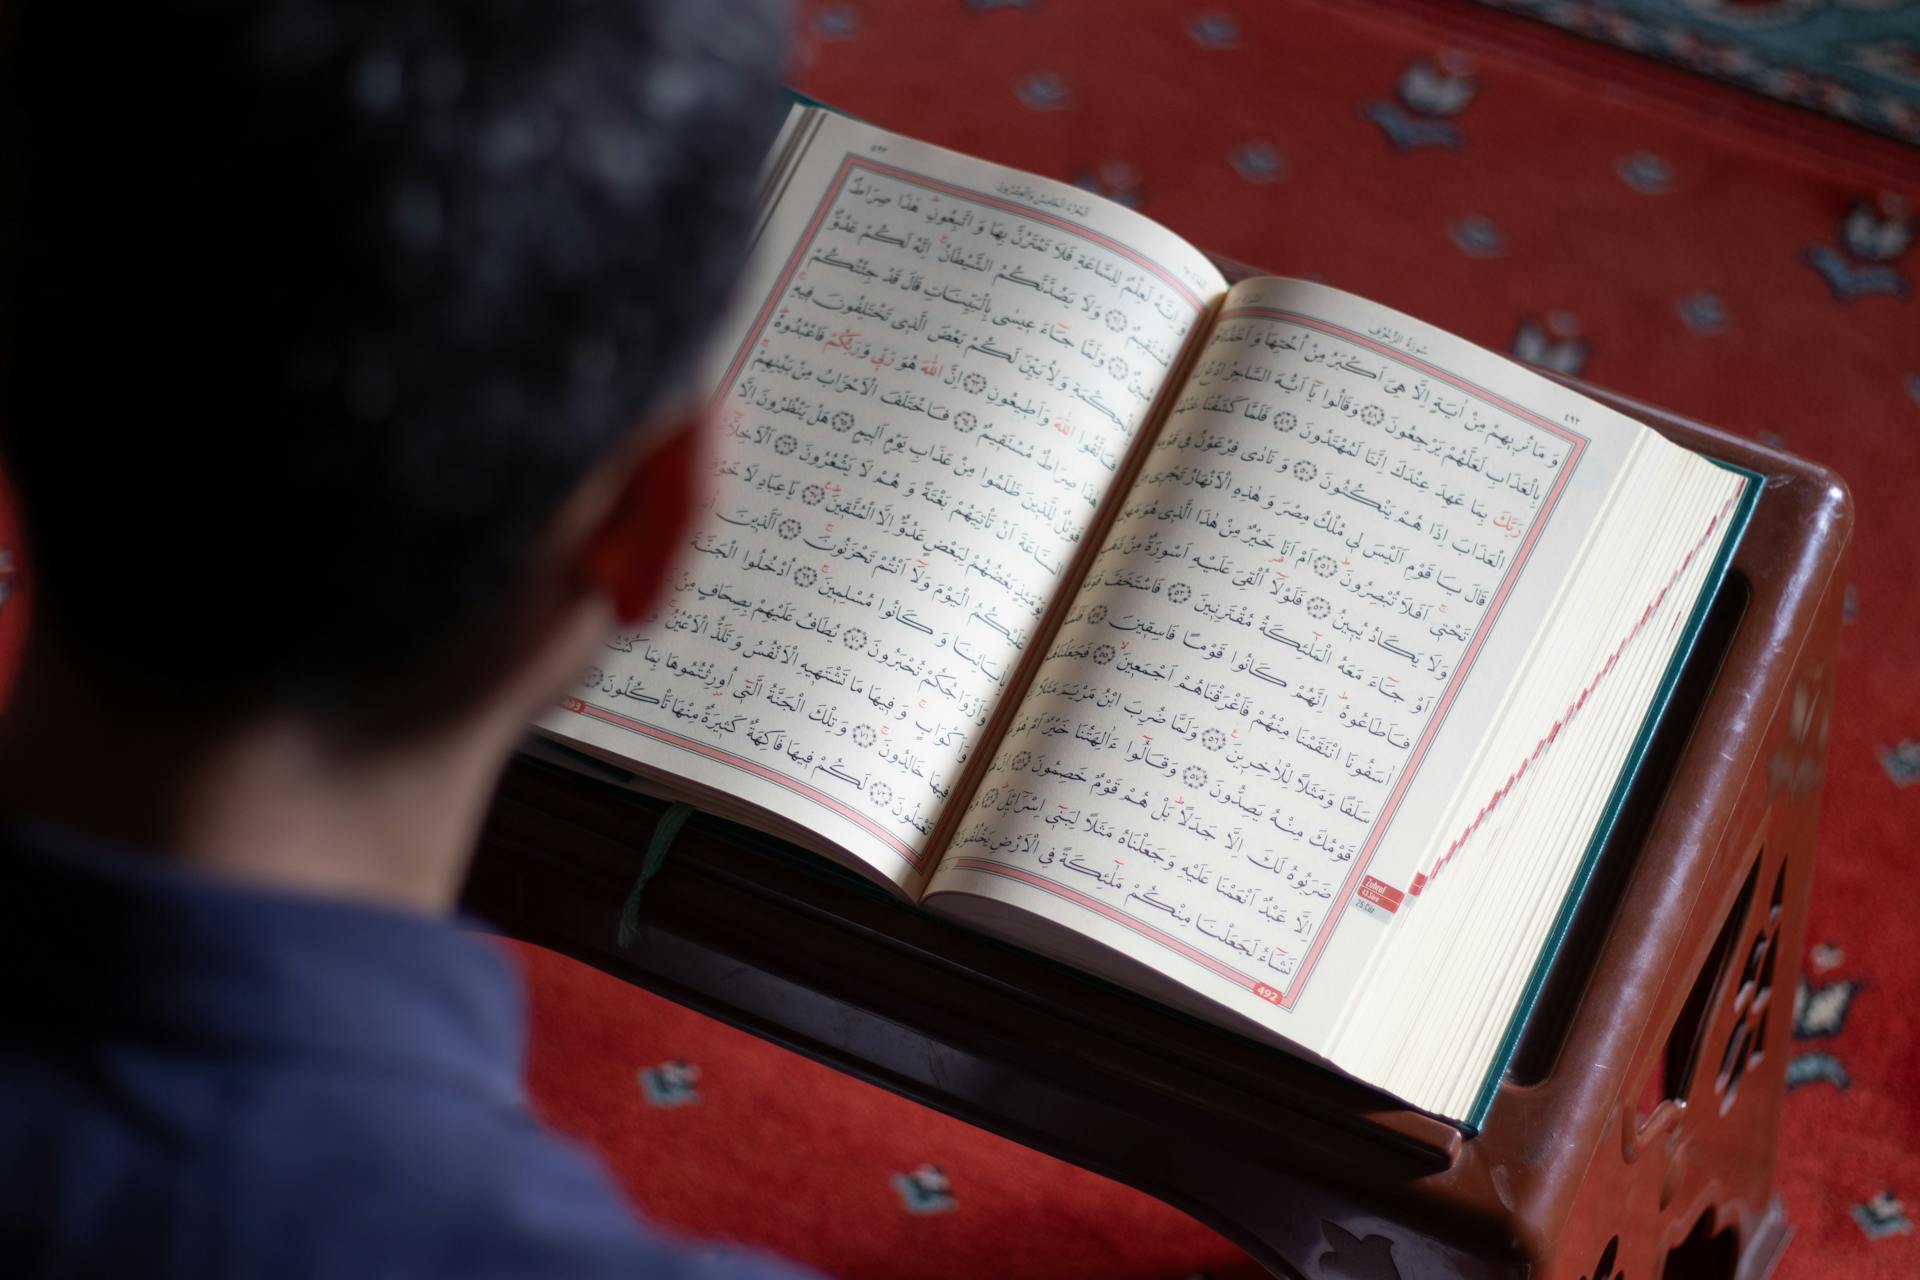 ٤٩٢
سُورَةُ الزُّخْرُفِ
وَمَا نُرِيهِمْ مِنْ اٰيَةٍ اِلَّا هِيَ اَكْبَرُ مِنْ اُخْتِهَاۘ وَاَخَذْنَاهُمْ
بِالْعَذَابِ لَعَلَّهُمْ يَرْجِعُونَ ﴿٤٨﴾ وَقَالُوا يَٓا اَيُّهَ السَّاحِرُ ادْعُ
رَبَّكَ بِمَا عَهِدَ عِنْدَكَ اِنَّنَا لَمُهْتَدُونَ ﴿٤٩﴾ فَلَمَّا كَشَفْنَا عَنْهُمُ
الْعَذَابَ اِذَا هُمْ يَنْكُثُونَ ﴿٥٠﴾ وَنَادٰى فِرْعَوْنُ فِي قَوْمِهِ
قَالَ يَا قَوْمِ اَلَيْسَ لِي مُلْكُ مِصْرَ وَهٰذِهِ الْاَنْهَارُ تَجْرِي مِنْ
تَحْتِيۚ اَفَلَا تُبْصِرُونَۜ ﴿٥١﴾ اَمْ اَنَا خَيْرٌ مِنْ هٰذَا الَّذِي هُوَ مَهِينٌ
وَلَا يَكَادُ يُبِينُ ﴿٥٢﴾ فَلَوْلَٓا اُلْقِيَ عَلَيْهِ اَسْوِرَةٌ مِنْ ذَهَبٍ
اَوْ جَٓاءَ مَعَهُ الْمَلٰٓئِكَةُ مُقْتَرِنِينَ ﴿٥٣﴾ فَاسْتَخَفَّ قَوْمَهُ
فَاَطَاعُوهُۜ اِنَّهُمْ كَانُوا قَوْمًا فَاسِقِينَ ﴿٥٤﴾ فَلَمَّٓا
اٰسَفُونَا انْتَقَمْنَا مِنْهُمْ فَاَغْرَقْنَاهُمْ اَجْمَعِينَۙ ﴿٥٥﴾ فَجَعَلْنَاهُمْ
سَلَفًا وَمَثَلًا لِلْاٰخِرِينَ۟ ﴿٥٦﴾ وَلَمَّا ضُرِبَ ابْنُ مَرْيَمَ مَثَلًا
قَوْمُكَ مِنْهُ يَصِدُّونَ ﴿٥٧﴾ وَقَالُٓوا ءَاٰلِهَتُنَا خَيْرٌ اَمْ هُوَ
ضَرَبُوهُ لَكَ اِلَّا جَدَلًاۜ بَلْ هُمْ قَوْمٌ خَصِمُونَ ﴿٥٨﴾ اِنْ هُوَ
اِلَّا عَبْدٌ اَنْعَمْنَا عَلَيْهِ وَجَعَلْنَاهُ مَثَلًا لِبَنِٓي اِسْرَٓائِلَ ﴿٥٩﴾
نَشَٓاءُ لَجَعَلْنَا مِنْكُمْ مَلٰٓئِكَةً فِي الْاَرْضِ يَخْلُفُونَ
492
Zuhruf
43.Sûre
25.Cüz
٤٩٣
اَلْجُزْءُ الْخَامِسُ وَالْعِشْرُونَ
وَاِنَّهُ لَعِلْمٌ لِلسَّاعَةِ فَلَا تَمْتَرُنَّ بِهَا وَاتَّبِعُونِۜ هٰذَا صِرَاطٌ
مُسْتَقِيمٌ ﴿٦١﴾ وَلَا يَصُدَّنَّكُمُ الشَّيْطَانُۚ اِنَّهُ لَكُمْ عَدُوٌّ
مُبِينٌ ﴿٦٢﴾ وَلَمَّا جَٓاءَ عِيسٰى بِالْبَيِّنَاتِ قَالَ قَدْ جِئْتُكُمْ
بِالْحِكْمَةِ وَلِاُبَيِّنَ لَكُمْ بَعْضَ الَّذِي تَخْتَلِفُونَ فِيهِۚ
فَاتَّقُوا اللّٰهَ وَاَطِيعُونِ ﴿٦٣﴾ اِنَّ اللّٰهَ هُوَ رَبِّي وَرَبُّكُمْ فَاعْبُدُوهُۜ
هٰذَا صِرَاطٌ مُسْتَقِيمٌ ﴿٦٤﴾ فَاخْتَلَفَ الْاَحْزَابُ مِنْ بَيْنِهِمْۚ
فَوَيْلٌ لِلَّذِينَ ظَلَمُوا مِنْ عَذَابِ يَوْمٍ اَلِيمٍ ﴿٦٥﴾ هَلْ يَنْظُرُونَ اِلَّا
السَّاعَةَ اَنْ تَأْتِيَهُمْ بَغْتَةً وَهُمْ لَا يَشْعُرُونَ ﴿٦٦﴾ اَلْاَخِلَّٓاءُ
يَوْمَئِذٍ بَعْضُهُمْ لِبَعْضٍ عَدُوٌّ اِلَّا الْمُتَّقِينَ۟ ﴿٦٧﴾ يَا عِبَادِ لَا خَوْفٌ
عَلَيْكُمُ الْيَوْمَ وَلَٓا اَنْتُمْ تَحْزَنُونَۚ ﴿٦٨﴾ اَلَّذِينَ
بِاٰيَاتِنَا وَكَانُوا مُسْلِمِينَۚ ﴿٦٩﴾ اُدْخُلُوا الْجَنَّةَ
وَاَزْوَاجُكُمْ تُحْبَرُونَ ﴿٧٠﴾ يُطَافُ عَلَيْهِمْ بِصِحَافٍ مِنْ
وَاَكْوَابٍۚ وَفِيهَا مَا تَشْتَهِيهِ الْاَنْفُسُ وَتَلَذُّ الْاَعْيُنُۚ
فِيهَا خَالِدُونَۚ ﴿٧١﴾ وَتِلْكَ الْجَنَّةُ الَّتِٓي اُورِثْتُمُوهَا بِمَا كُنْتُمْ
تَعْمَلُونَ ﴿٧٢﴾ لَكُمْ فِيهَا فَاكِهَةٌ كَثِيرَةٌ مِنْهَا تَأْكُلُونَ
493